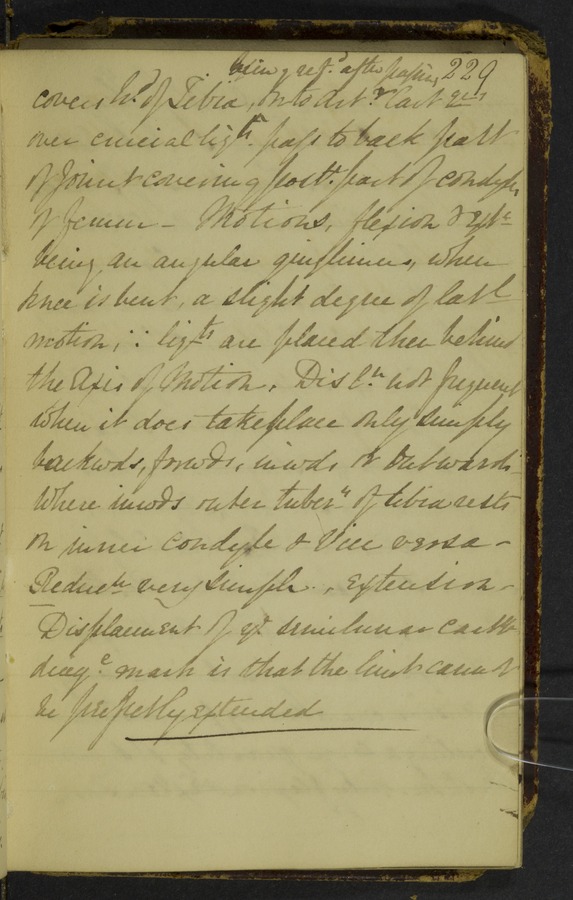 being refd. after passing 229
covers hd. of Tibia, into Cart
over crucial ligts. pass to back part
of Joint covering postr. part of condyles
of femur – Motions, flexion & extn
being an angular ginglimus, when
knee is bent, a slight degree of latl
motion, ∵ ligts are placed then behind
the Axis of Motion. Disln. not frequent
when it does take place only simply
backwds, forwds, inwds or Outwards
Where inwds outer tubery of tibia rests
on inner condyle & Vice versa –
Reductn very simple, Extension –
Displacement of semilunar Carte
diagc. mark is that the limb cannot
be perfectly extended